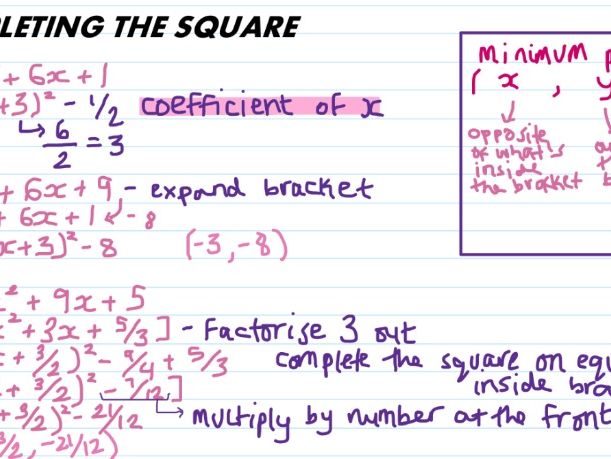 LETING THE SQUARE
+ 6x + 1
+3)² - 1/2 coefficient of x
↳ 6/2 = 3
+ 6x + 9 - expand bracket
+ 6x + 1 ↙ - 8
x+3)² - 8 (-3, -8)
² + 9x + 5
x² + 3x + 5/3] - Factorise 3 out
x + 3/2)² - 9/4 + 5/3 complete the square on equ
+ 3/2)² - 7/12] inside bra
+ 3/2)² - 21/12 ↳ multiply by number at the front
3/2, -21/12)
minimum p
( x , y
opposite
of what's
inside
the bracket